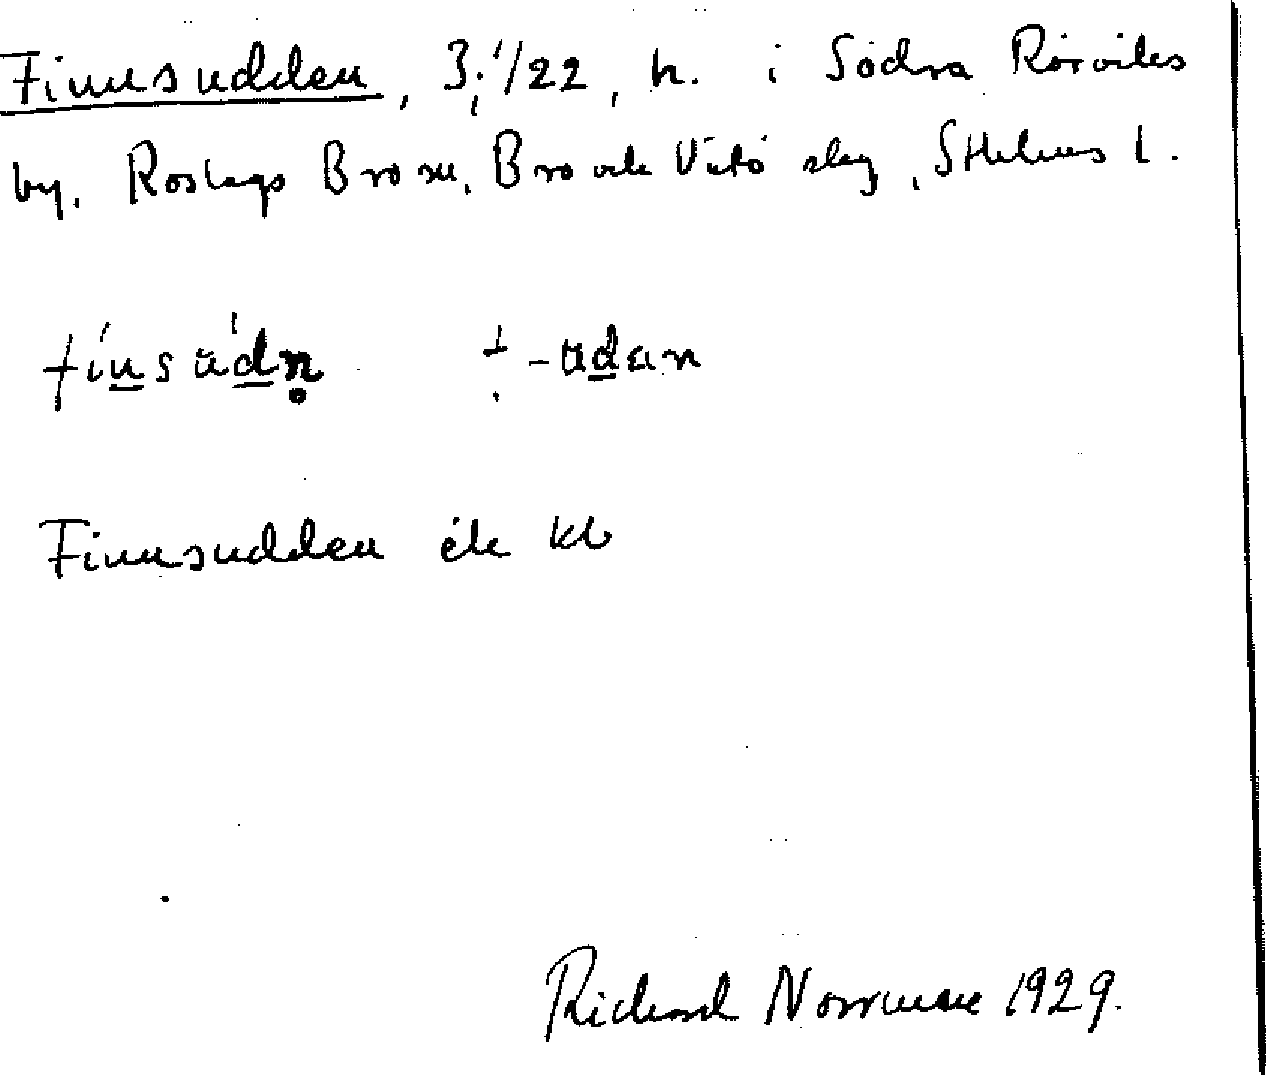 Finnsudden, 3:1/22, h. i Södra Rörviks
by. Roslags Bro sn, Bro och Vätö slg, Sthlms l.
fínsùdn̥ ⸸ -udən
Finnsudden ék kb
Richard Norrman 1929.